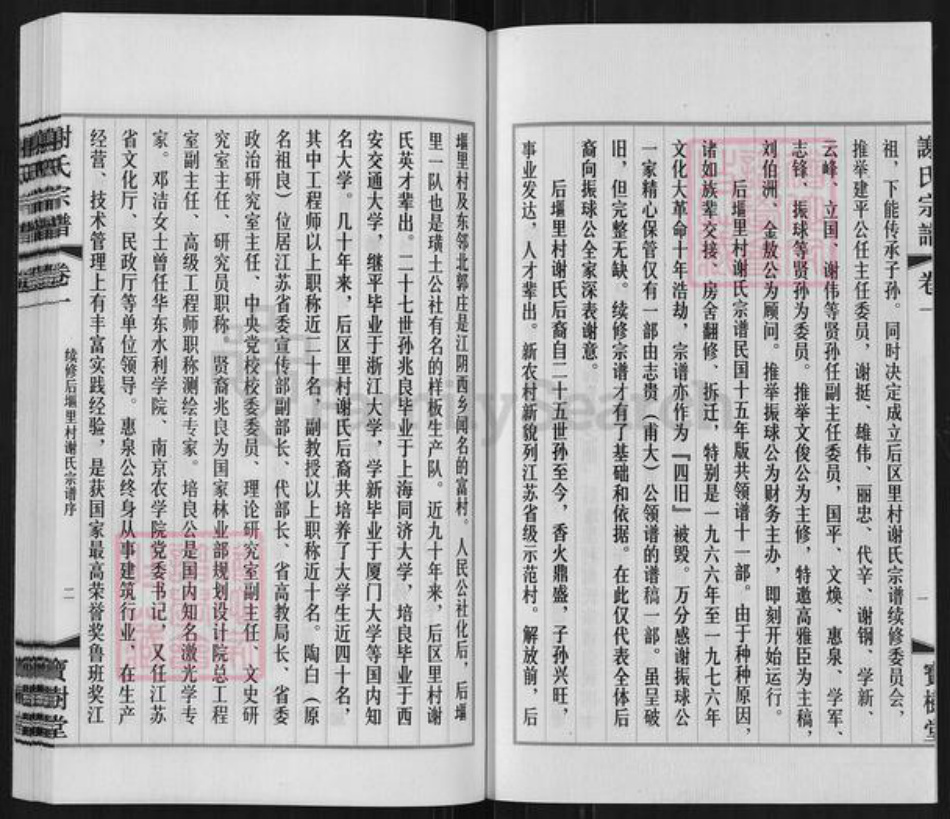 祖，下能传承子孙。同时决定成立后区里村谢氏宗谱续修委员会，
推举建平公任主任委员，谢挺、雄伟、丽忠、代辛、谢钢、学新、
云峰、立国、谢伟等贤孙任副主任委员，国平、文焕、惠泉、学军、
志锋、振球等贤孙为委员。推举文俊公为主修，特邀高雅臣为主稿，
刘伯洲、金敖公为顾问。推举振球公为财务主办，即刻开始运行。
后堰里村谢氏宗谱民国十五年版共领谱十一部。由于种种原因，
诸如族辈交接，房舍翻修、拆迁，特别是一九六六年至一九七六年
文化大革命十年浩劫，宗谱亦作为『四旧』被毁。万分感谢振球公
一家精心保管仅有一部由志贵（甫大）公领谱的谱稿一部。虽呈破
旧，但完整无缺。续修宗谱才有了基础和依据。在此仅代表全体后
裔向振球公全家深表谢意。
后堰里村谢氏后裔自二十五世孙至今，香火鼎盛，子孙兴旺，
事业发达，人才辈出。新农村新貌列江苏省级示范村。解放前，后
谢氏宗谱
卷一
一
寶樹堂
堰里村及东邻北郭庄是江阴西乡闻名的富村。人民公社化后，后堰
里一队也是璜土公社有名的样板生产队。近九十年来，后区里村谢
氏英才辈出。二十七世孙兆良毕业于上海同济大学，培良毕业于西
安交通大学，继平毕业于浙江大学，学新毕业于厦门大学等国内知
名大学。几十年来，后区里村谢氏后裔共培养了大学生近四十名，
其中工程师以上职称近二十名，副教授以上职称近十名。陶白（原
名祖良）位居江苏省委宣传部副部长、代部长、省高教局长、省委
政治研究室主任、中央党校校委委员、理论研究室副主任、文史研
究室主任、研究员职称。贤裔兆良为国家林业部规划设计院总工程
室副主任、高级工程师职称测绘专家。培良公是国内知名激光学专
家。邓洁女士曾任华东水利学院、南京农学院党委书记，又任江苏
省文化厅、民政厅等单位领导。惠泉公终身从事建筑行业，在生产
经营、技术管理上有丰富实践经验，是获国家最高荣誉奖鲁班奖江
謝氏宗谱
卷一
续修后堰里村谢氏宗谱序
二
寶樹堂
FamilySearch